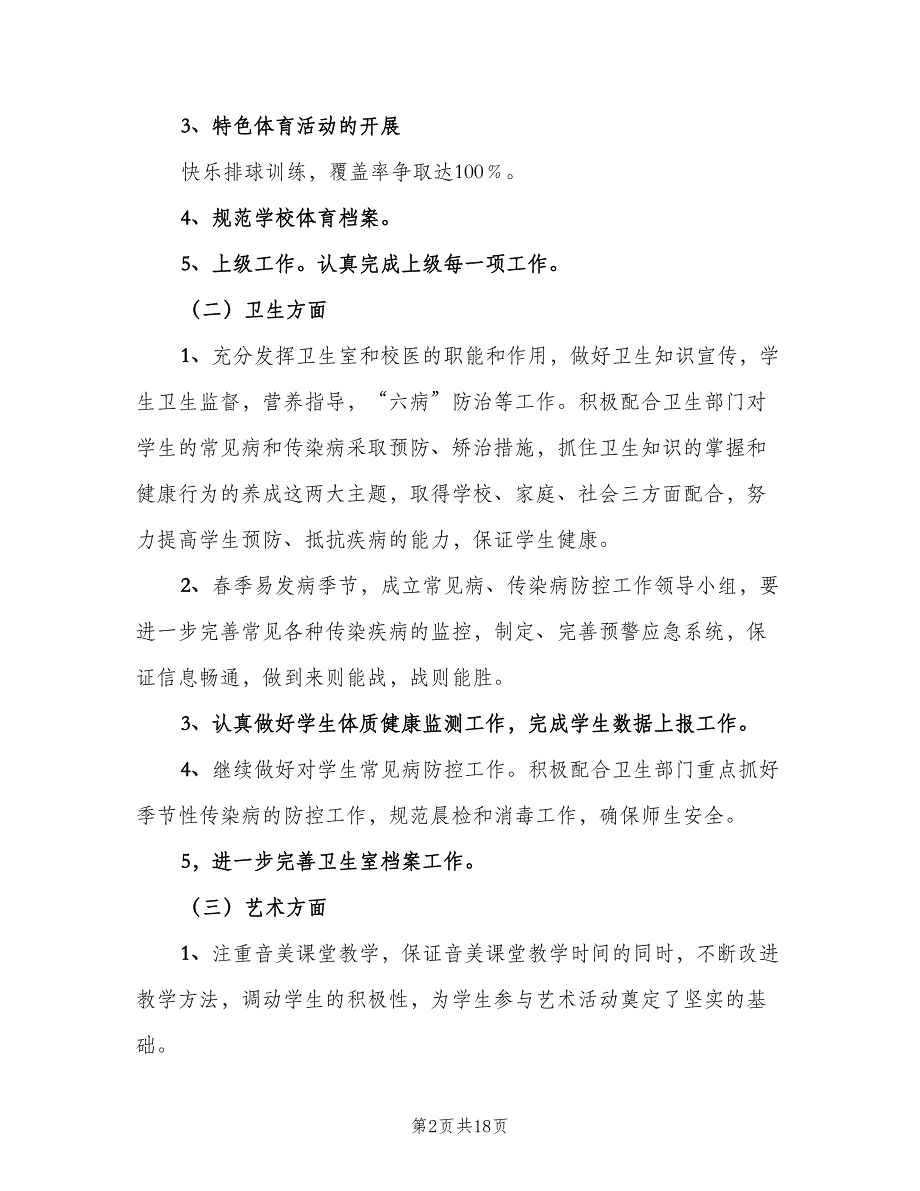 3、特色体育活动的开展
快乐排球训练，覆盖率争取达100％。
4、规范学校体育档案。
5、上级工作。认真完成上级每一项工作。
（二）卫生方面
1、充分发挥卫生室和校医的职能和作用，做好卫生知识宣传，学
生卫生监督，营养指导，“六病”防治等工作。积极配合卫生部门对
学生的常见病和传染病采取预防、矫治措施，抓住卫生知识的掌握和
健康行为的养成这两大主题，取得学校、家庭、社会三方面配合，努
力提高学生预防、抵抗疾病的能力，保证学生健康。
2、春季易发病季节，成立常见病、传染病防控工作领导小组，要
进一步完善常见各种传染疾病的监控，制定、完善预警应急系统，保
证信息畅通，做到来则能战，战则能胜。
3、认真做好学生体质健康监测工作，完成学生数据上报工作。
4、继续做好对学生常见病防控工作。积极配合卫生部门重点抓好
季节性传染病的防控工作，规范晨检和消毒工作，确保师生安全。
5，进一步完善卫生室档案工作。
（三）艺术方面
1、注重音美课堂教学，保证音美课堂教学时间的同时，不断改进
教学方法，调动学生的积极性，为学生参与艺术活动奠定了坚实的基
础。
第2页共18页